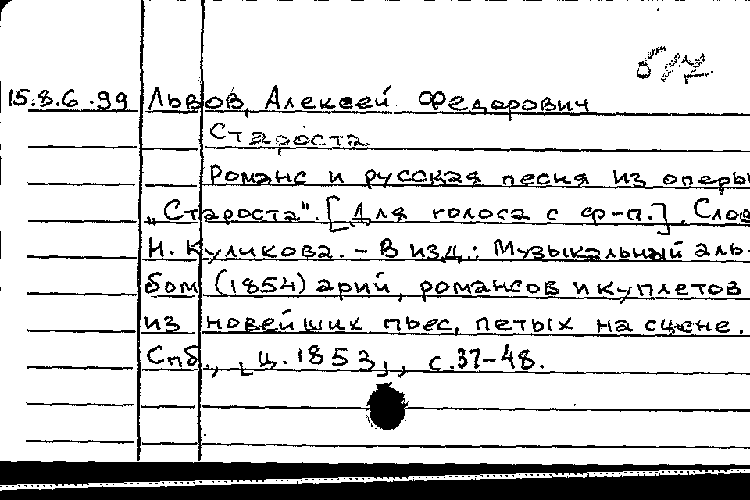 15.8.6.99 Львов, Алексей Федорович
Староста
Романс и русская песня из оперы
„Староста". [Для голоса с ф-п.]. Слов
Н. Куликова. – В изд.: Музыкальный аль-
бом (1854) арий, романсов и куплетов
из новейших пьес, петых на сцене.
Спб., [ц. 1853], с. 37-48.